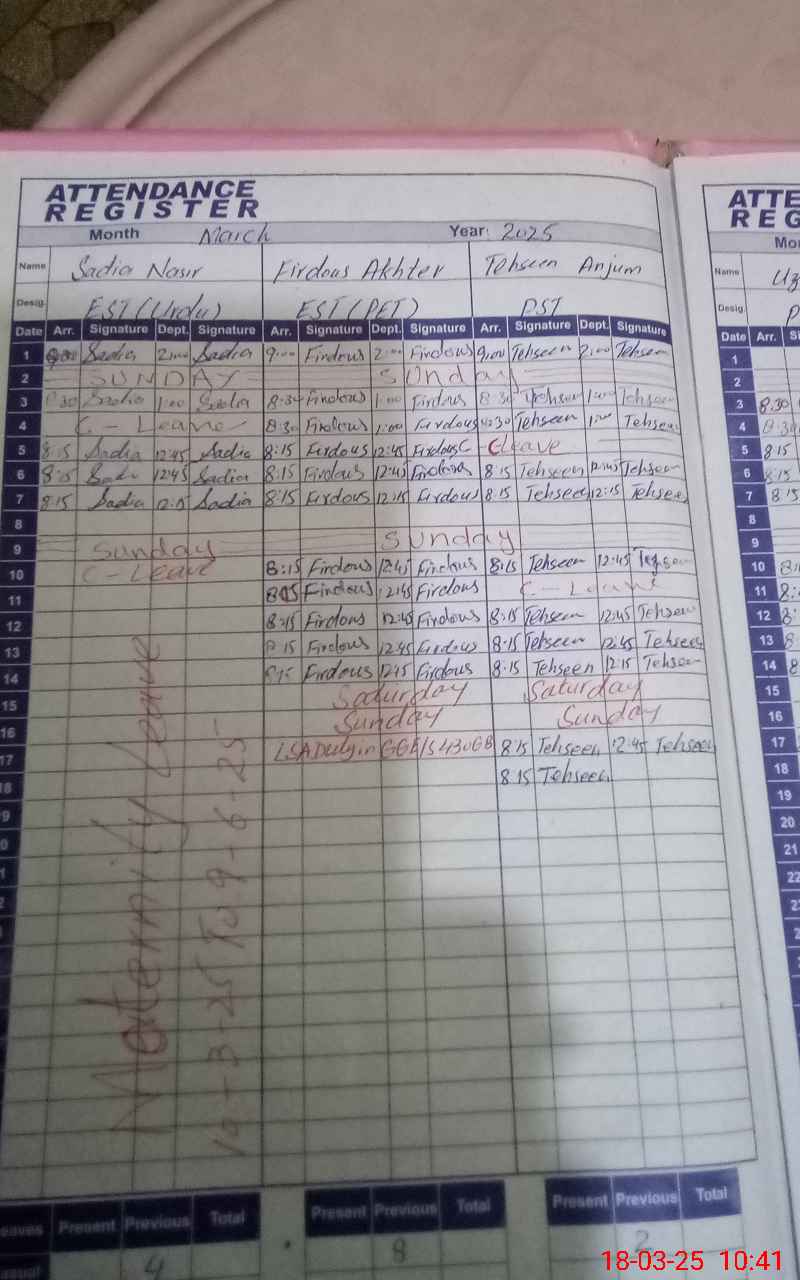 ATTENDANCE
REGISTER
Month March Year: 2025
Name Sadia Nasir Firdous Akhter Tehseen Anjum
Desig. EST (Urdu) EST (PET) PST
Date Arr. Signature Dept. Signature Arr. Signature Dept. Signature Arr. Signature Dept. Signature
1 Sadia 2:00 Sadia 9:00 Firdous 2:00 Firdous 9:00 Tehseen 2:00 Tehseen
2 SUNDAY Sunday
3 8:30 Sadia 1:00 Sadia 8:30 Firdous 1:00 Firdous 8:30 Tehseen 1:00 Tehseen
4 C-Leave 8:30 Firdous 1:00 Firdous Tehseen 1:00 Tehseen
5 8:15 Sadia 12:45 Sadia 8:15 Firdous 12:45 Firdous C-Leave
6 8:15 Sadia 12:45 Sadia 8:15 Firdous 12:45 Firdous 8:15 Tehseen 12:45 Tehseen
7 8:15 Sadia 12:15 Sadia 8:15 Firdous 12:15 Firdous 8:15 Tehseen 12:15 Tehseen
8
9 Sunday Sunday
10 C-Leave 8:15 Firdous 12:45 Firdous 8:15 Tehseen 12:45 Tehseen
11 8:15 Firdous 12:45 Firdous C-Leave
12 8:15 Firdous 12:45 Firdous 8:15 Tehseen 12:45 Tehseen
13 8:15 Firdous 12:45 Firdous 8:15 Tehseen 12:45 Tehseen
14 8:15 Firdous 12:15 Firdous 8:15 Tehseen 12:15 Tehseen
15 Saturday Saturday
16 Sunday Sunday
17 LSA Duty in 8:15 Tehseen 12:45 Tehseen
18 8:15 Tehseen
Maternity Leave
To 9-6-25
Present Previous Total Present Previous Total Present Previous Total
4 8 2
ATTE
REG
Name
Desig.
Date Arr. S
1
2
3 8:30
4 8:30
5 8:15
6 8:15
7 8:15
8
9
10
11
12
13
14
15
16
17
18
19
20
21
22
18-03-25 10:41